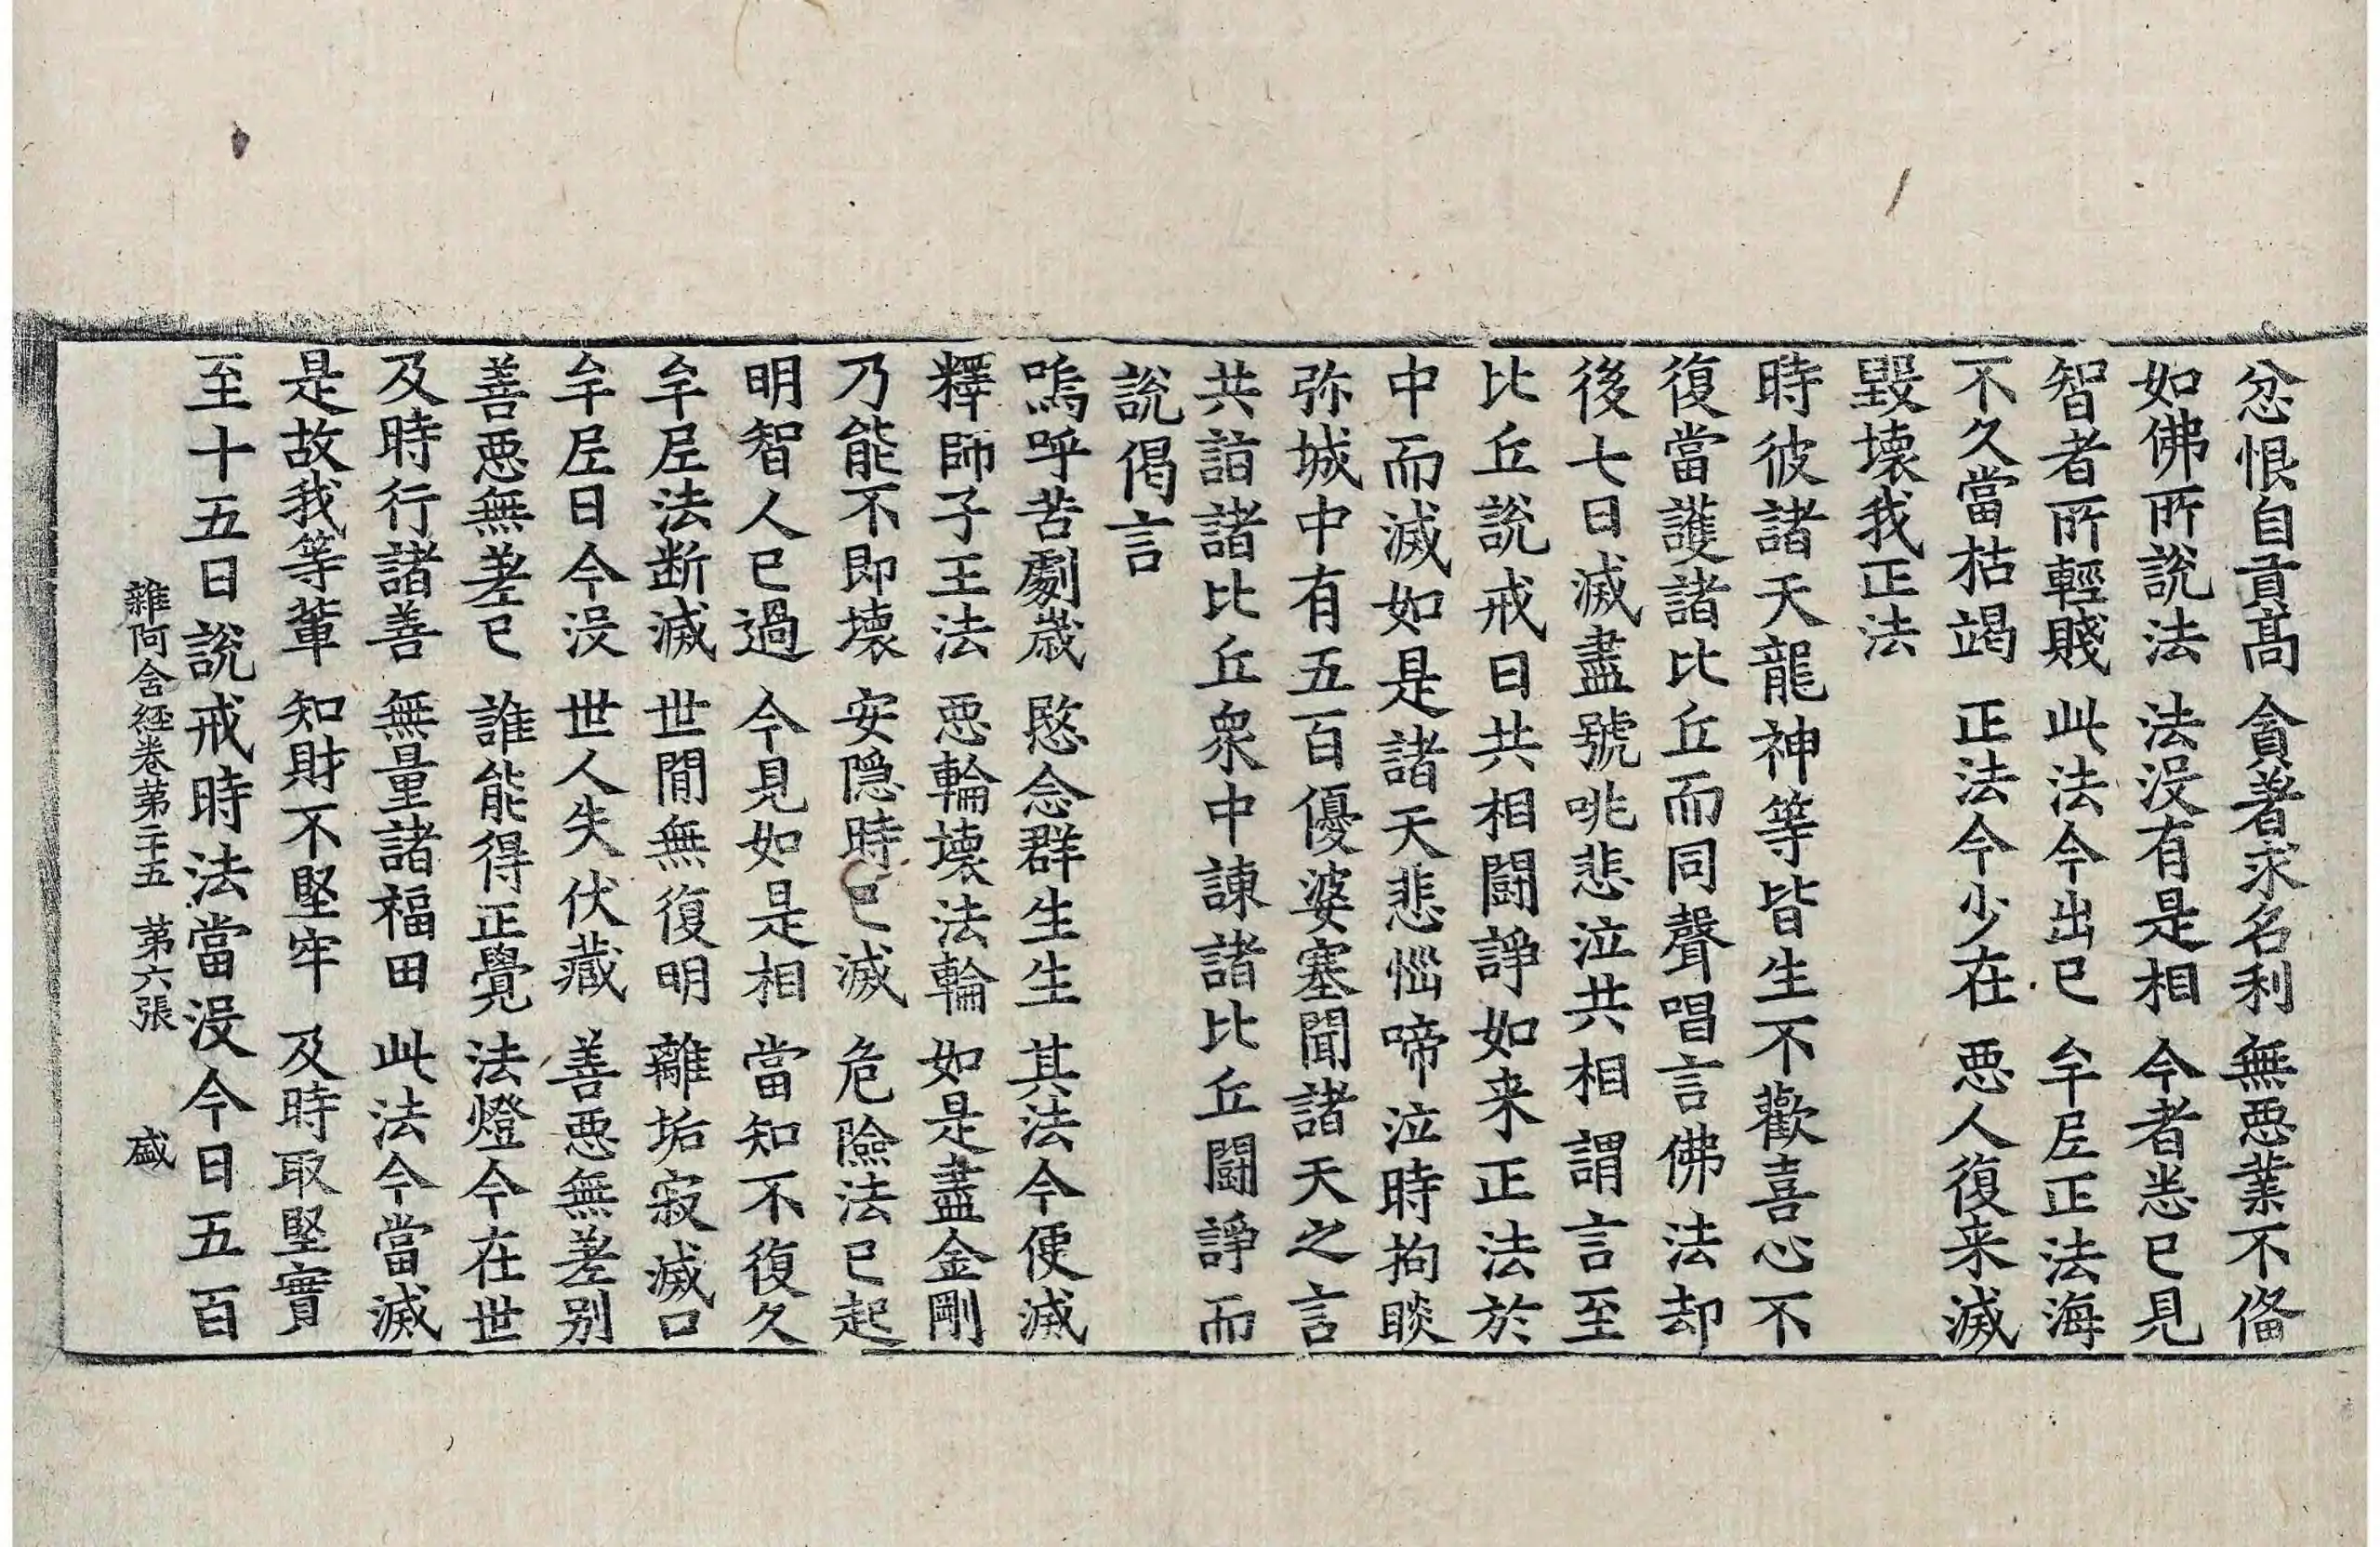 忿恨自貢高　貪著求名利　無惡業不俻
如佛所說法　法沒有是相　今者悉已見
智者所輕賤　此法今出已　牟尼正法海
不久當枯竭　正法今少在　惡人復来滅
毀壞我正法
時彼諸天龍神等皆生不歡喜心不
復當護諸比丘而同聲唱言佛法却
後七日滅盡號咷悲泣共相謂言至
比丘說戒日共相鬪諍如来正法於
中而滅如是諸天悲惱啼泣時拘睒
弥城中有五百優婆塞聞諸天之言
共詣諸比丘衆中諫諸比丘鬪諍而
說偈言
嗚呼苦劇歲　愍念群生生　其法今便滅
釋師子王法　惡輪壞法輪　如是盡金剛
乃能不即壞　安隱時已滅　危險法已起
明智人已過　今見如是相　當知不復久
牟尼法断滅　世間無復明　離垢寂滅口
牟尼日今没　世人失伏藏　善惡無差别
善惡無差已　誰能得正覺　法燈今在世
及時行諸善　無量諸福田　此法今當滅
是故我等輩　知財不堅牢　及時取堅實
至十五日說戒時法當没今日五百
雜阿含経卷第二十五　第六張　盛